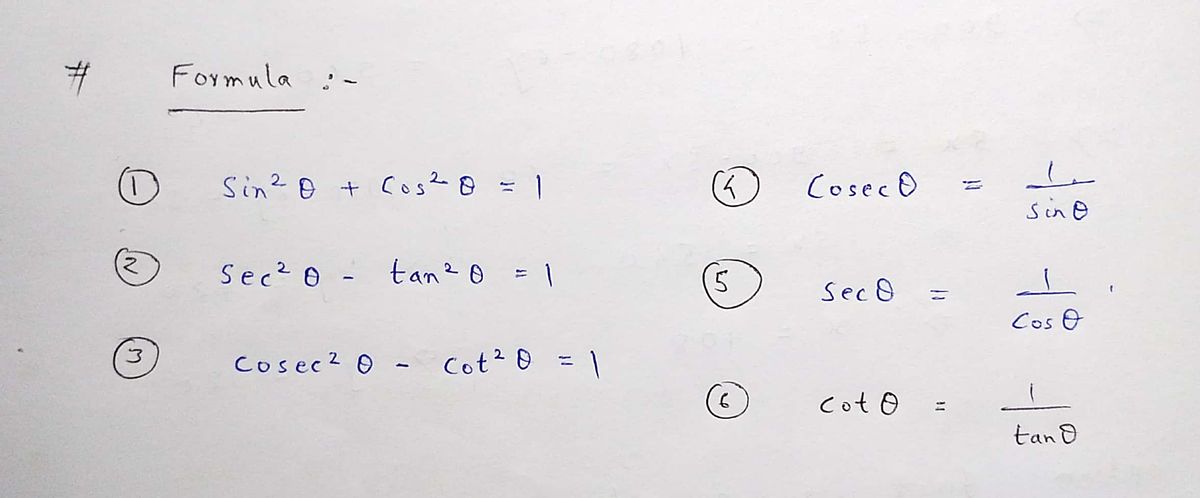 # Formula :-
① Sin² θ + Cos² θ = 1
② Sec² θ - tan² θ = 1
③ Cosec² θ - Cot² θ = 1
④ Cosec θ = 1/sin θ
⑤ Sec θ = 1/Cos θ
⑥ Cot θ = 1/tan θ